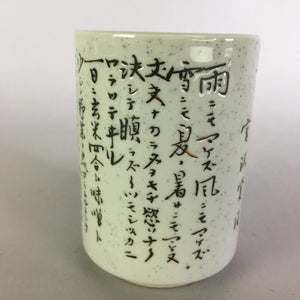 宮沢賢治
雨ニモマケズ風ニモマケズ
雪ニモ夏ノ暑サニモマケヌ
丈夫ナカラダヲモチ慾ハナク
決シテ瞋ラズイツモシヅカニ
ワラッテヰル
一日ニ玄米四合ト味噌ト
少シノ野菜ヲタベ